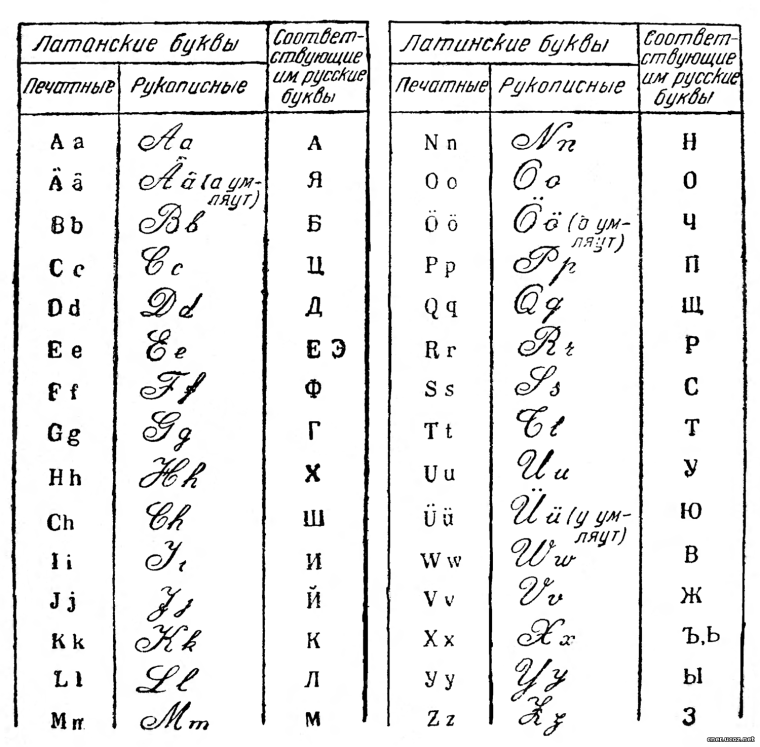 Латанские буквы | Соответ-
ствующие
им русские
буквы
Печатные | Рукописные
A a | A a | А
Ä ä | Ä ä (а ум-
ляут) | Я
B b | B b | Б
C c | C c | Ц
D d | D d | Д
E e | E e | Е Э
F f | F f | Ф
G g | G g | Г
H h | H h | Х
Ch | Ch | Ш
I i | I i | И
J j | J j | Й
K k | K k | К
L l | L l | Л
M m | M m | М
Латинские буквы | Соответ-
ствующие
им русские
буквы
Печатные | Рукописные
N n | N n | Н
O o | O o | О
Ö ö | Ö ö (о ум-
ляут) | Ч
P p | P p | П
Q q | Q q | Щ
R r | R r | Р
S s | S s | С
T t | T t | Т
U u | U u | У
Ü ü | Ü ü (у ум-
ляут) | Ю
W w | W w | В
V v | V v | Ж
X x | X x | Ъ,Ь
У у | Y y | Ы
Z z | Z z | З
cmer.ucoz.net